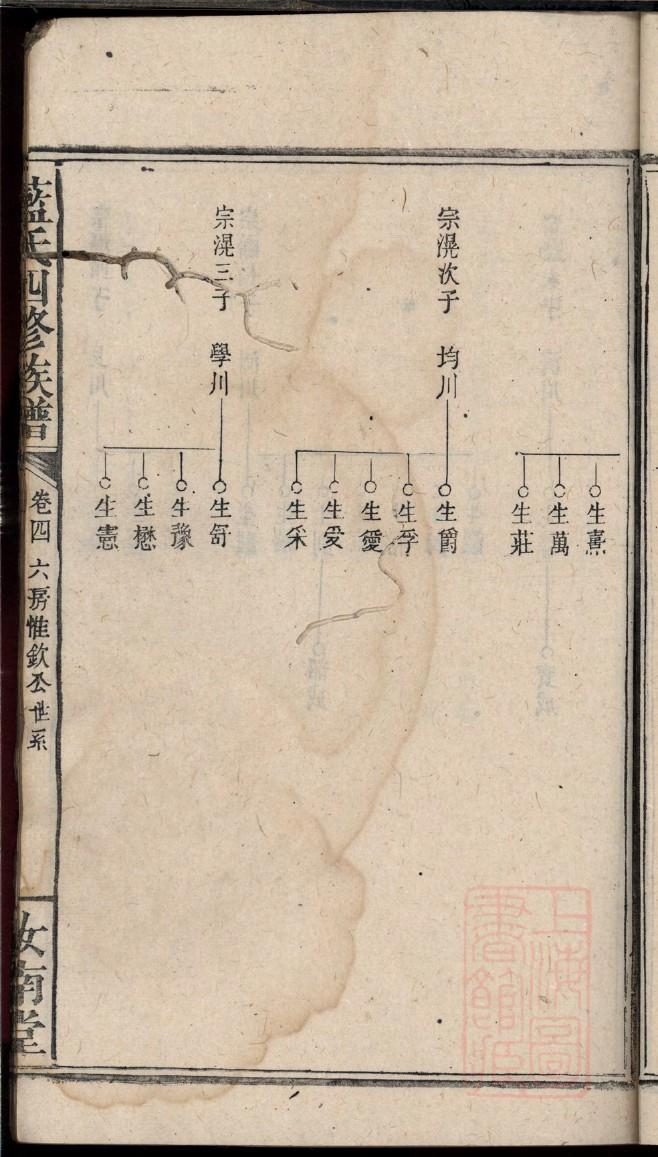 生熹
生萬
生莊
宗滉次子 均川
生爵
生孚
生愛
生采
宗滉三子 學川
生舒
生豫
生懋
生憲
藍氏四修族譜
卷四 六房惟欽公世系
汝南堂
上海圖書館藏